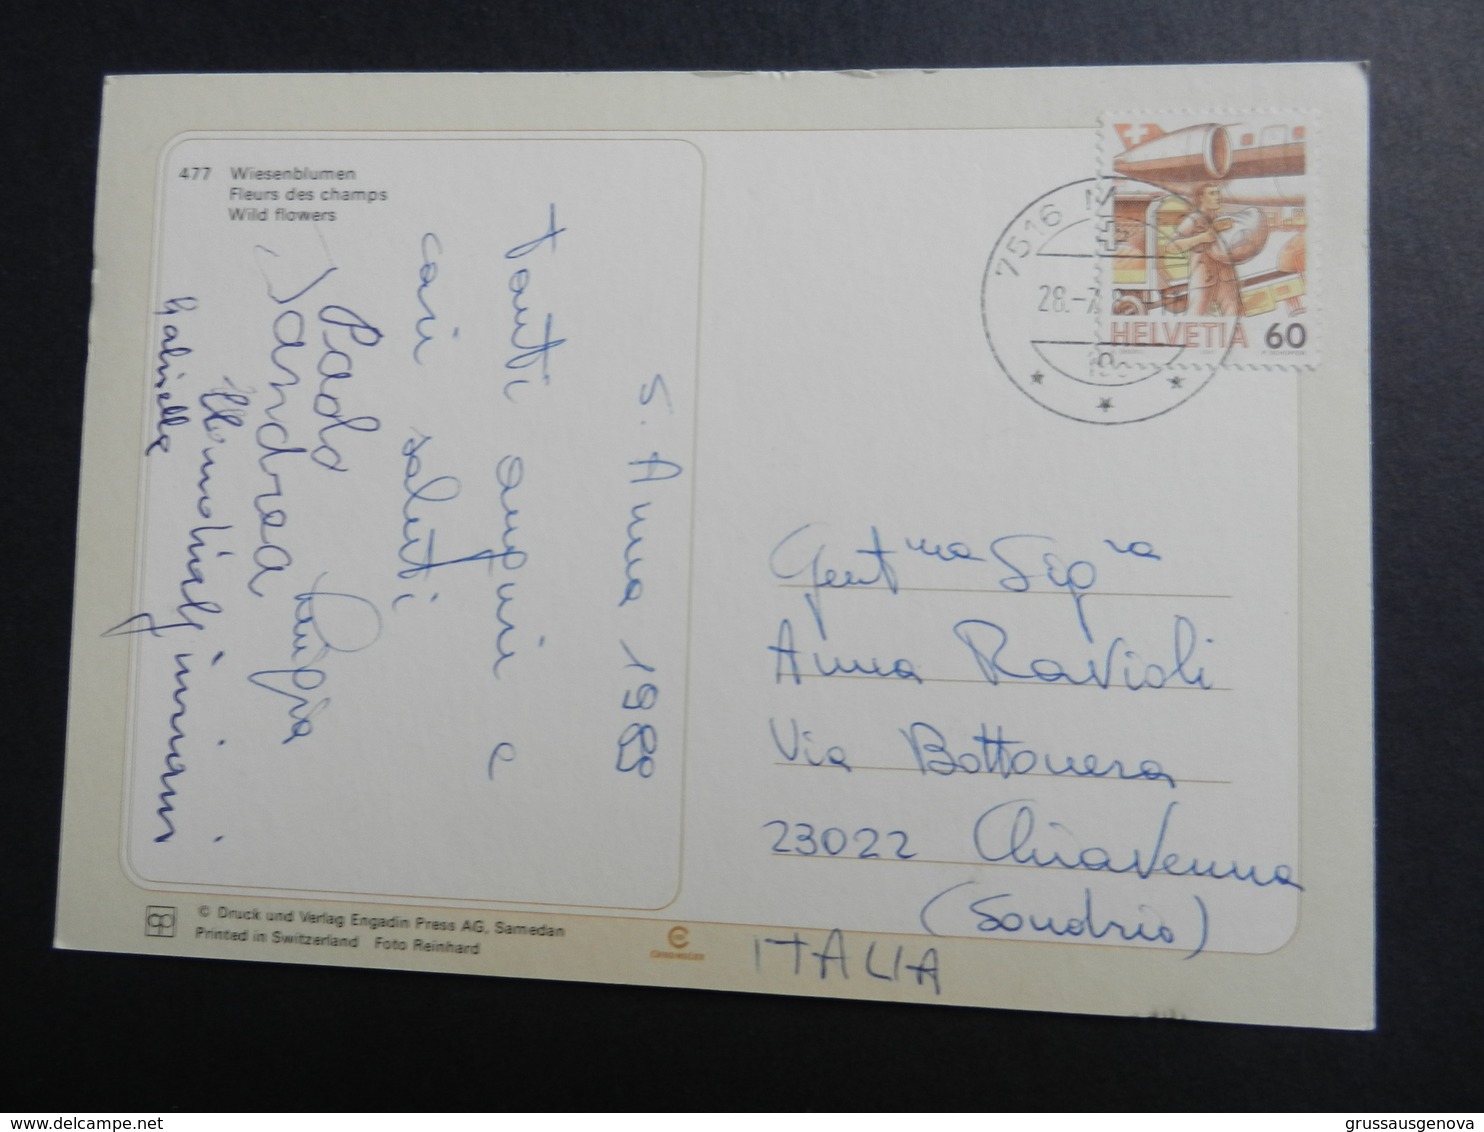 477 Wiesenblumen
Fleurs des champs
Wild flowers
S. Anna 1989
Tanti auguri e
cari saluti
Paolo Luigia
Sandrea
Gabriella
7516 M
28.-7.8
HELVETIA 60
Gent.ma Sig.ra
Anna Ravioli
Via Bottonera
23022 Chiavenna
(Sondrio)
ITALIA
© Druck und Verlag Engadin Press AG, Samedan
Printed in Switzerland Foto Reinhard